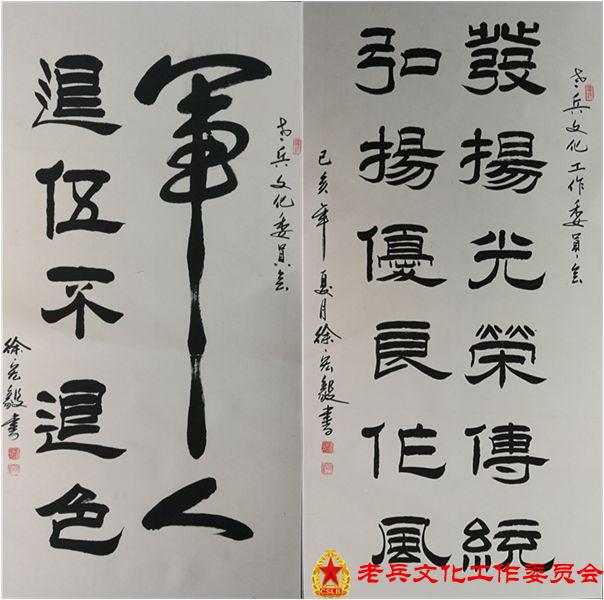 老兵文化委員会
軍人
退伍不退色
徐宏毅書
老兵文化工作委員会
發揚光榮傳統
弘揚優良作風
己亥年夏月徐宏毅書
CSLB
老兵文化工作委员会